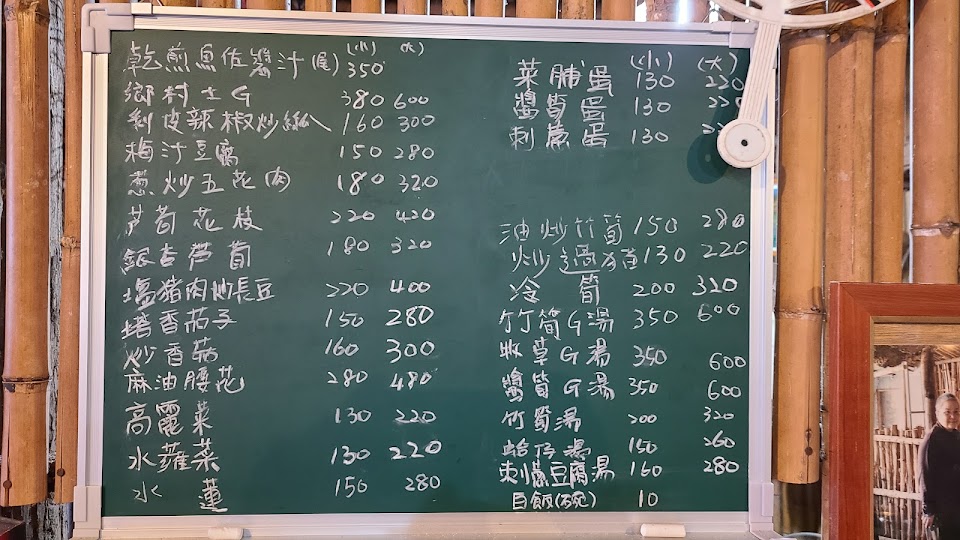 (小) (大)
乾煎魚佐醬汁(尾) 350
鄉村土G 380 600
剝皮辣椒炒 160 300
梅汁豆腐 150 280
蔥炒五花(肉) 180 320
芦荀花枝 220 420
銀杏芦荀 180 320
塩猪肉炒長豆 220 400
塔香茄子 150 280
炒香菇 160 300
麻油腰花 280 480
高麗菜 130 220
水蕹菜 130 220
水蓮 150 280
(小) (大)
菜脯蛋 130 220
醬筍蛋 130 220
刺蔥蛋 130
油炒竹筍 150 280
炒過貓 130 220
冷筍 200 320
竹筍G湯 350 600
牧草G湯 350 600
醬筍G湯 350 600
竹筍湯 200 320
蛤仔湯 150 260
刺蔥豆腐湯 160 280
白飯 10